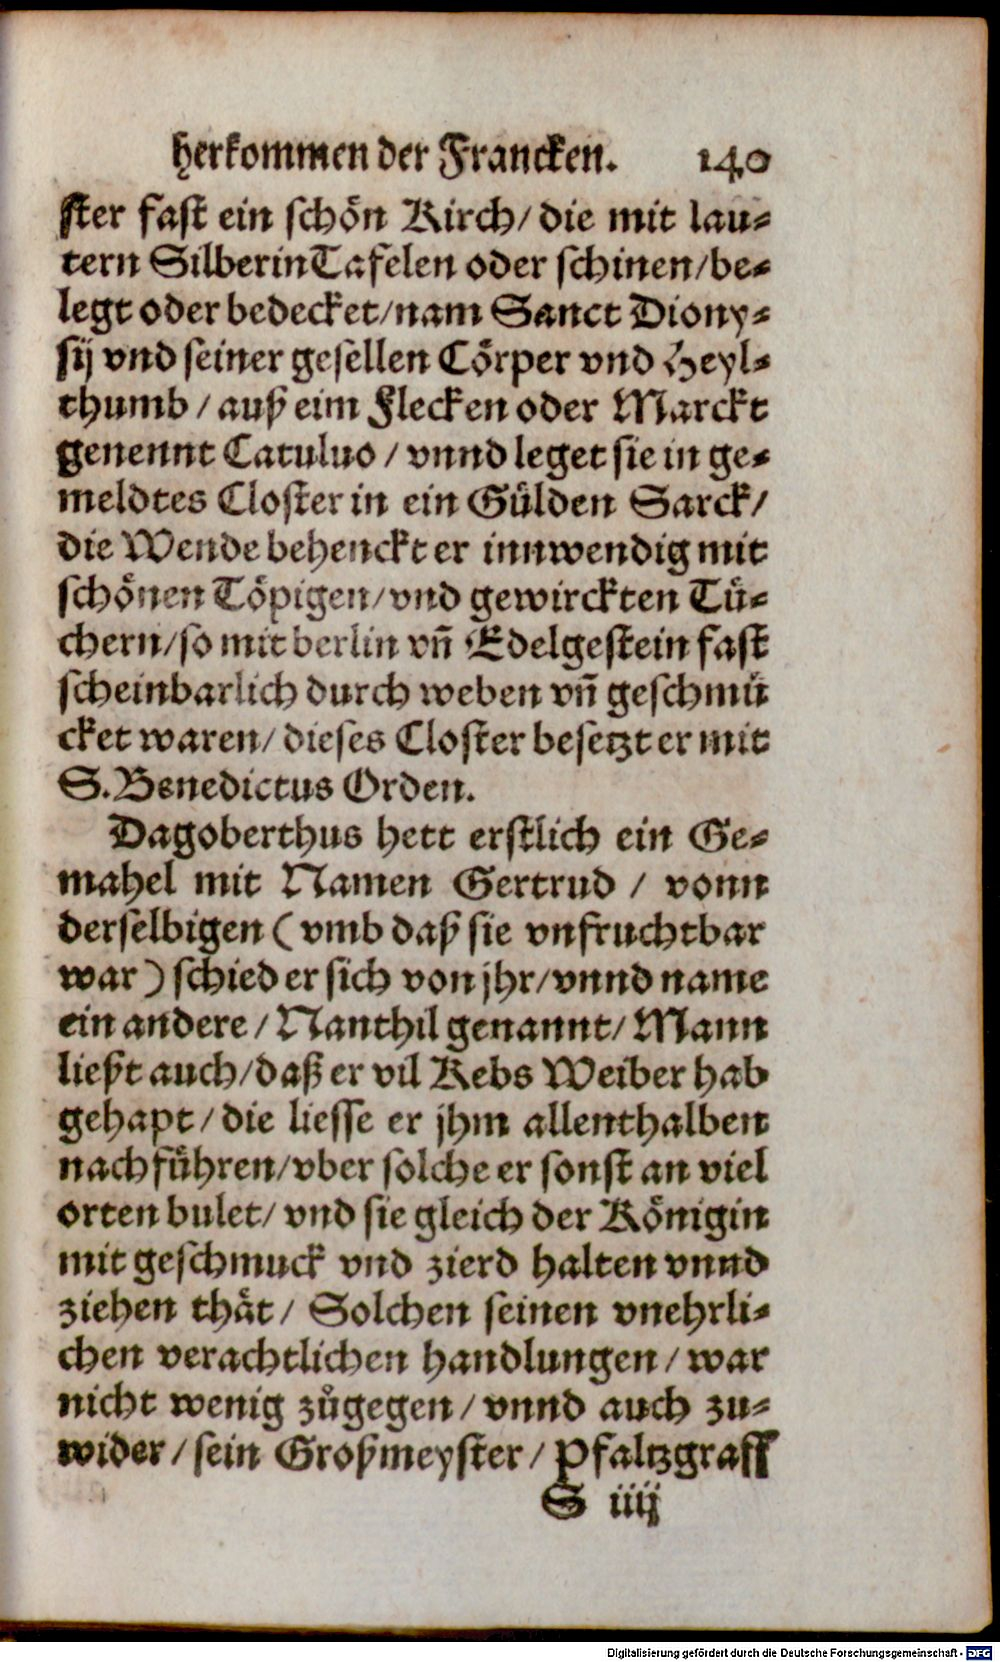 herkommen der Francken. 140
ster fast ein schoͤn Kirch/ die mit lau-
tern Silberin Tafelen oder schinen/ be-
legt oder bedecket/ nam Sanct Diony-
sij vnd seiner gesellen Coͤrper vnd Heyl-
thumb / auß eim Flecken oder Marckt
genennt Catuluo / vnnd leget sie in ge-
meldtes Closter in ein Guͤlden Sarck/
die Wende behenckt er innwendig mit
schoͤnen Toͤpigen/ vnd gewirckten Tuͤ-
chern/ so mit berlin vñ Edelgestein fast
scheinbarlich durch weben vñ geschmuͤ
cket waren/ dieses Closter besetzt er mit
S. Benedictus Orden.
Dagoberthus hett erstlich ein Ge-
mahel mit Namen Gertrud / vonn
derselbigen ( vmb daß sie vnfruchtbar
war ) schied er sich von jhr/ vnnd name
ein andere / Nanthil genannt/ Mann
ließt auch/ daß er vil Kebs Weiber hab
gehapt / die liesse er jhm allenthalben
nachfuͤhren/ vber solche er sonst an viel
orten bulet/ vnd sie gleich der Koͤnigin
mit geschmuck vnd zierd halten vnnd
ziehen thaͤt / Solchen seinen vnehrli-
chen verachtlichen handlungen / war
nicht wenig zůgegen / vnnd auch zu-
wider / sein Großmeyster / Pfaltzgraff
S iiij
Digitalisierung gefördert durch die Deutsche Forschungsgemeinschaft - DFG